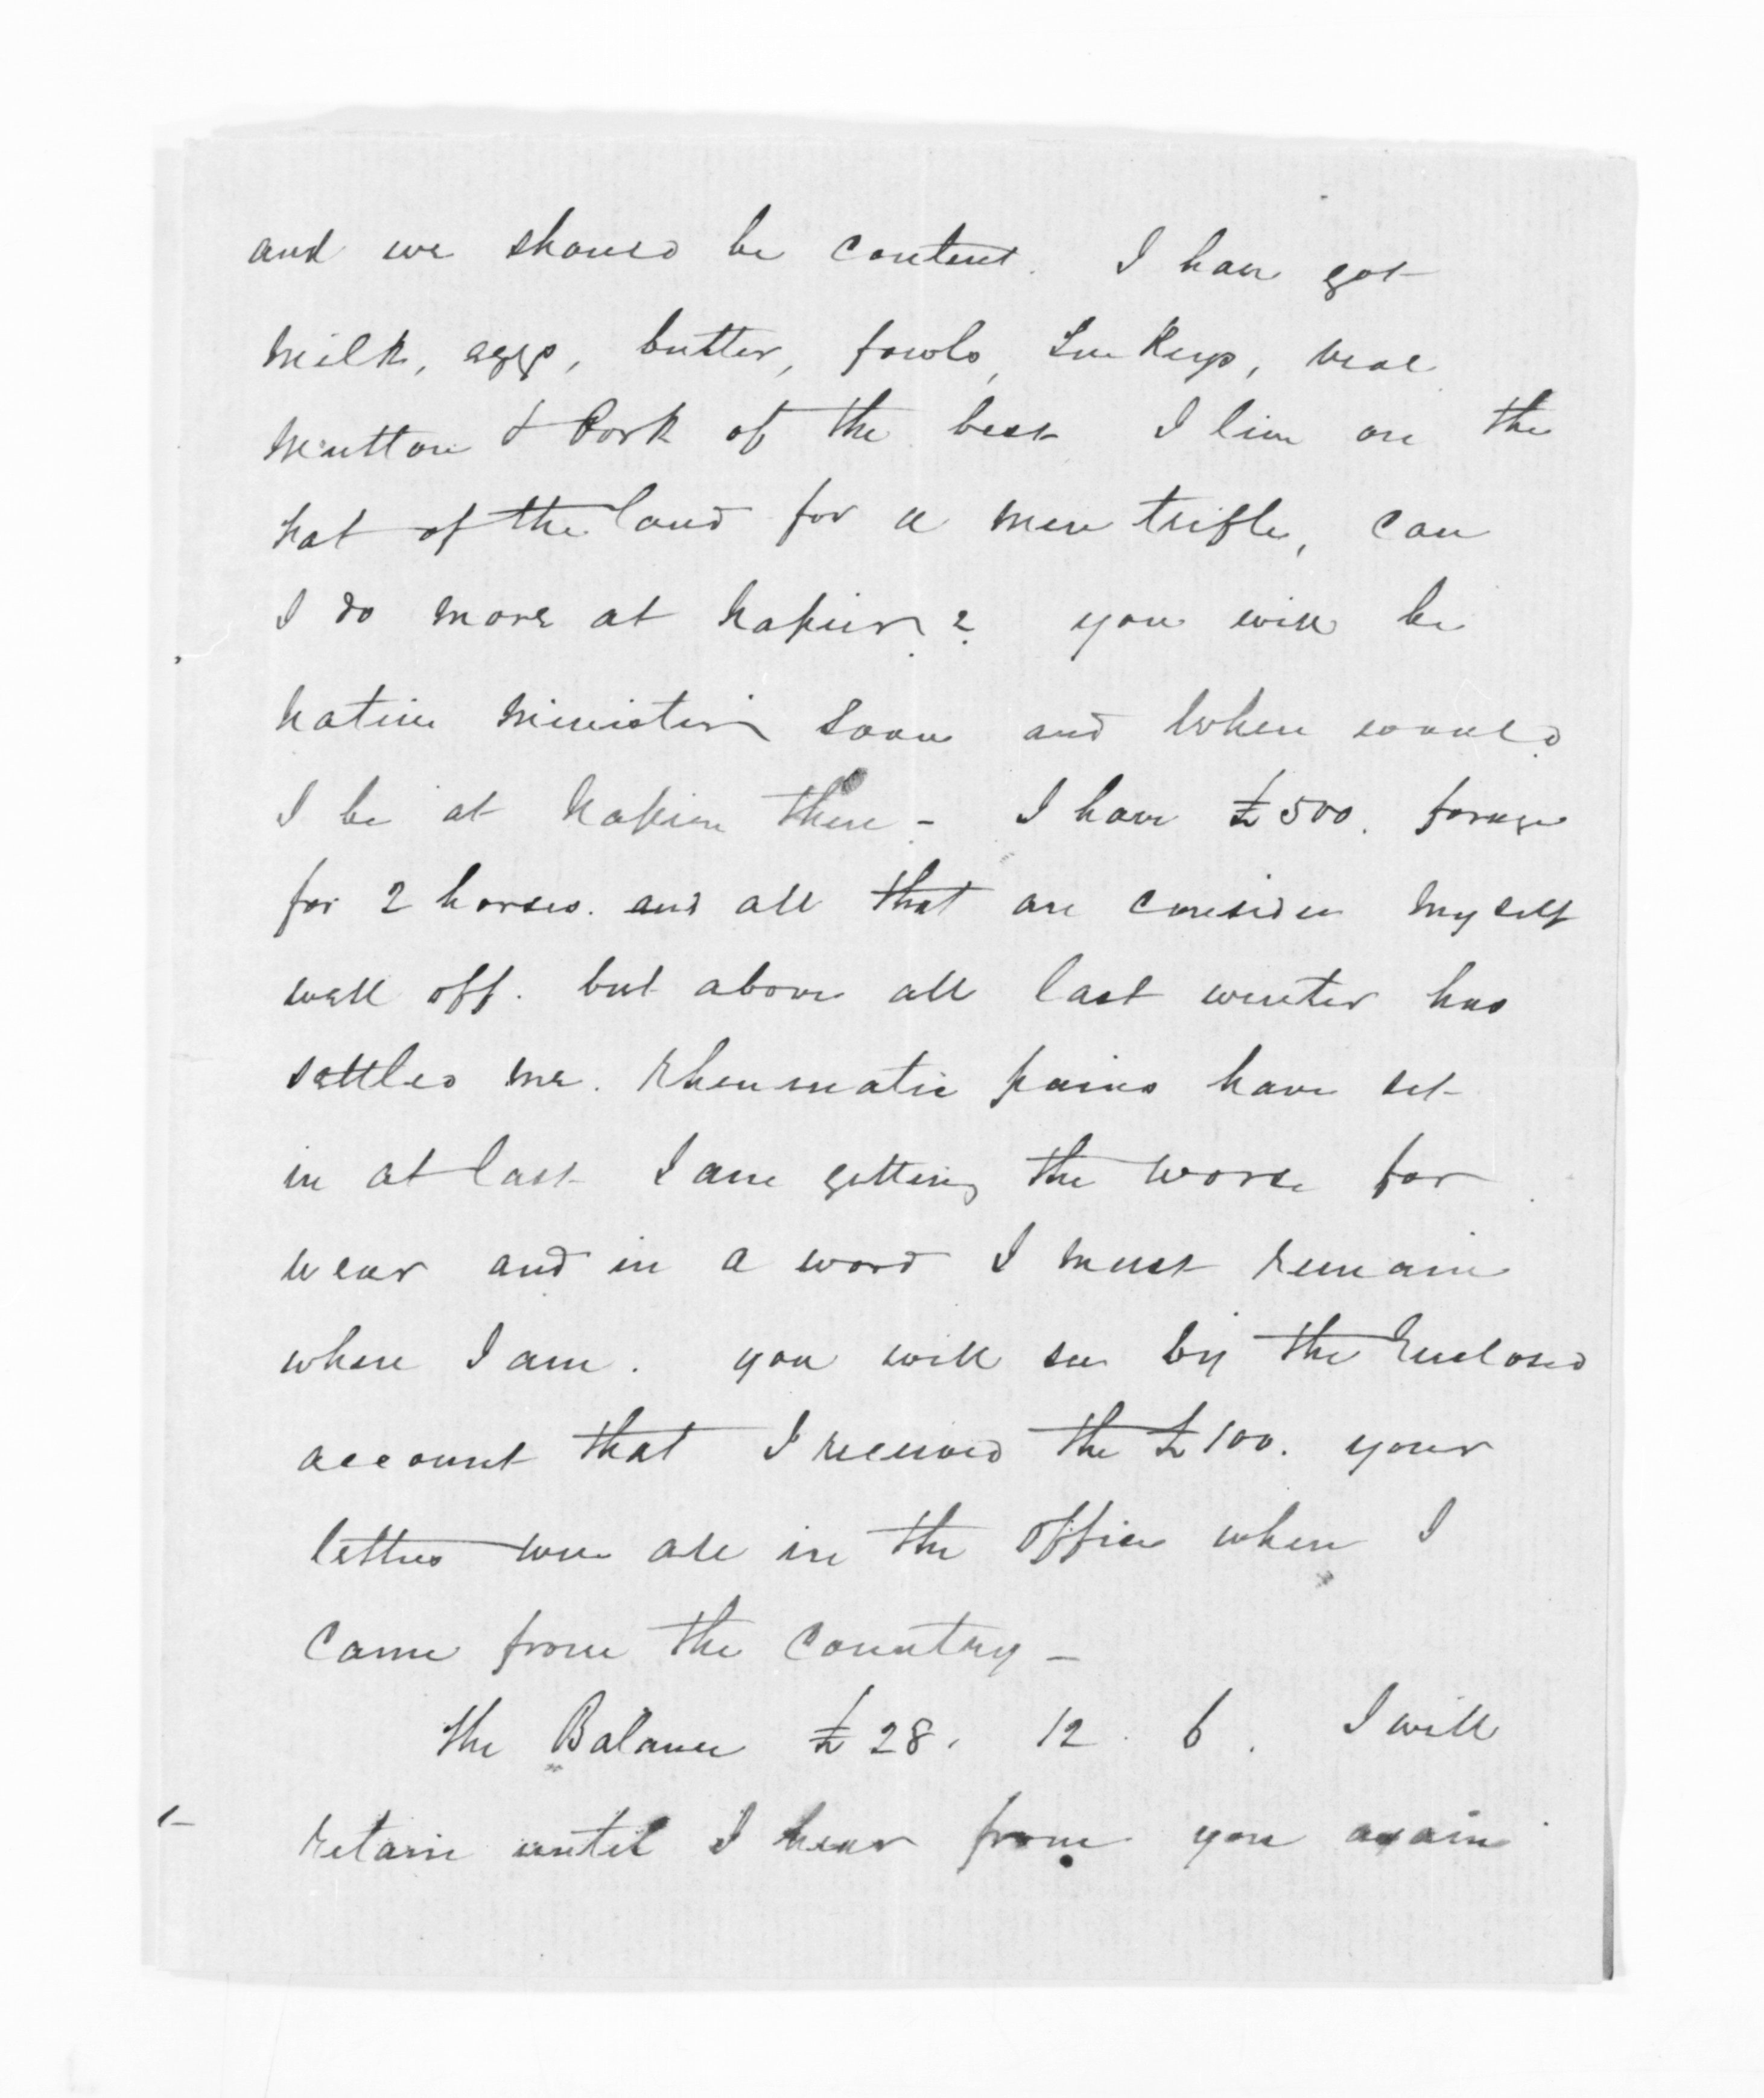 and we should be content. I have got
milk, eggs, butter, fowls, Turkeys, veal
mutton & Pork of the best I live on the
fat of the land for a mere trifle, can
I do more at Napier? you will be
Native Minister soon and where would
I be at Napier then - I have £500. forage
for 2 horses. and all that and consider myself
well off. but above all last winter has
settled me. Rheumatic pains have set
in at last I am getting the worse for
wear and in a word I must remain
where I am. you will see by the Enclosed
account that I received the £100. your
letters were all in the office when I
came from the Country -
the Balance £28. 12. 6. I will
retain until I hear from you again